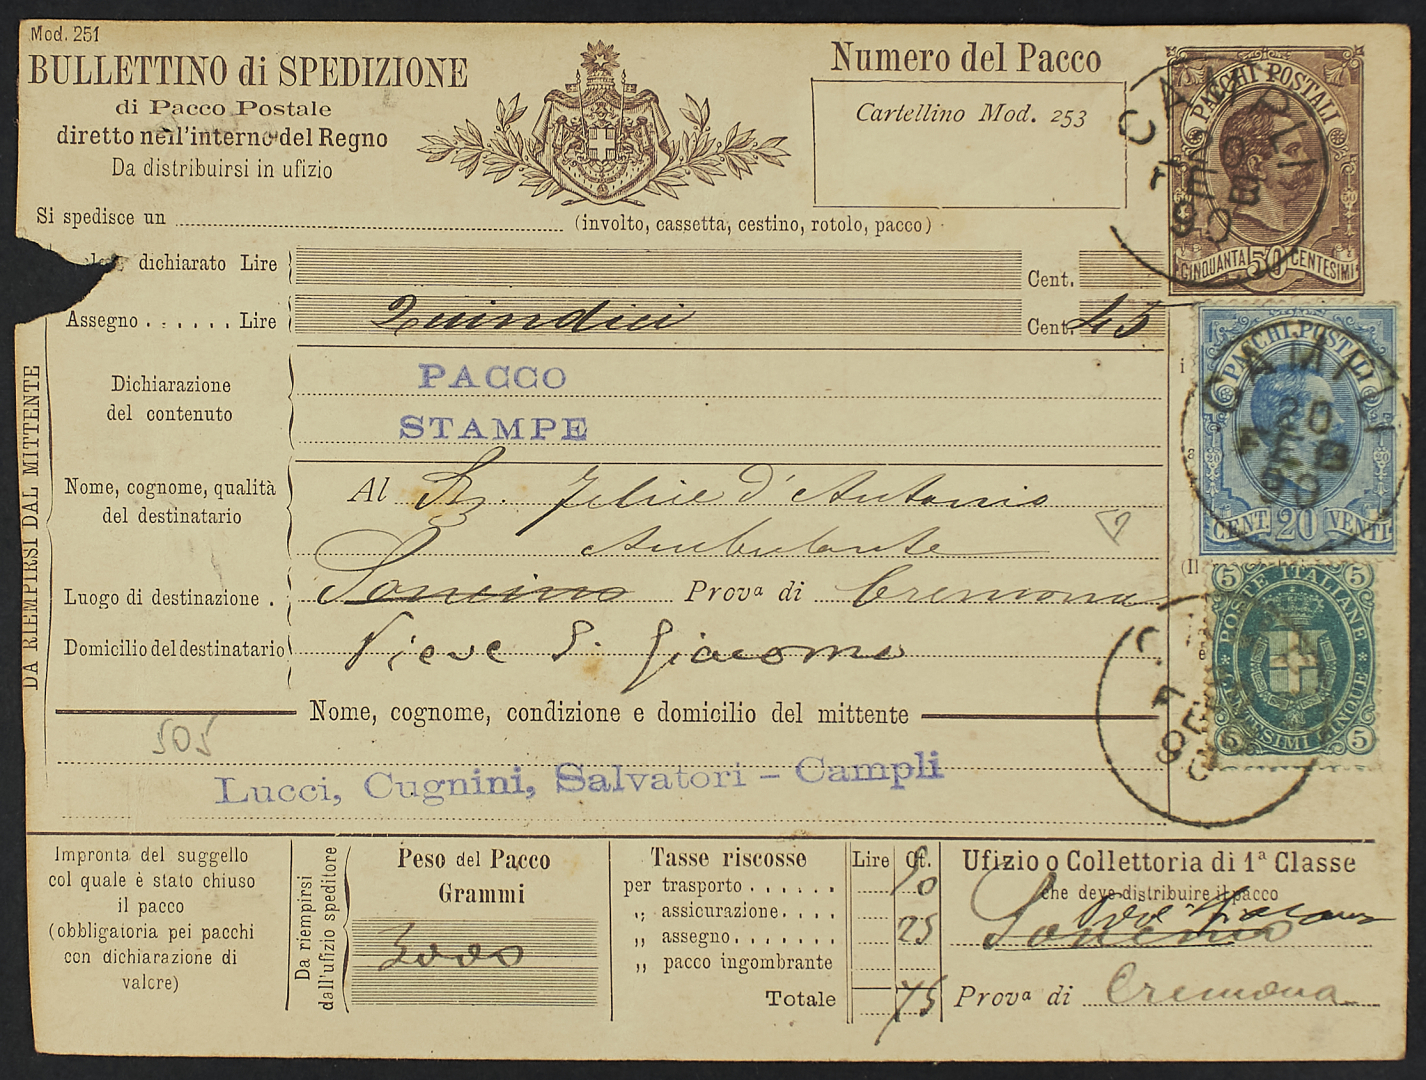 Mod. 251
BULLETTINO di SPEDIZIONE
di Pacco Postale
diretto nell'interno del Regno
Da distribuirsi in ufizio
Numero del Pacco
Cartellino Mod. 253
PACCHI POSTALI
CINQUANTA 50 CENTESIMI
CAMPLI
20 FEB 90
Si spedisce un
(involto, cassetta, cestino, rotolo, pacco)
dichiarato Lire
Cent.
Assegno . . . . . . Lire
Quindici
Cent. 45
PACCHI POSTALI
CENT. 20 VENTI
CAMPLI
20
FEB
90
Dichiarazione
del contenuto
PACCO
STAMPE
Nome, cognome, qualità
del destinatario
Al Sr. Felice d'Antonio
Ambulante
Luogo di destinazione .
Soncino Prova di Cremona
Domicilio del destinatario
Pieve S. Giacomo
DA RIEMPIRSI DAL MITTENTE
(Il
5 POSTE ITALIANE 5
5 CENTESIMI CINQUE 5
Nome, cognome, condizione e domicilio del mittente
505
Lucci, Cugnini, Salvatori - Campli
Impronta del suggello
col quale è stato chiuso
il pacco
(obbligatoria pei pacchi
con dichiarazione di
valore)
Da riempirsi
dall'ufizio speditore
Peso del Pacco
Grammi
3000
Tasse riscosse
Lire Ct.
per trasporto . . . . . . 50
„ assicurazione. . . .
„ assegno . . . . . . . 25
„ pacco ingombrante
Totale 75
Ufizio o Collettoria di 1ª Classe
che deve distribuire il pacco
Pieve S. Giacomo
Soncino
Prova di Cremona